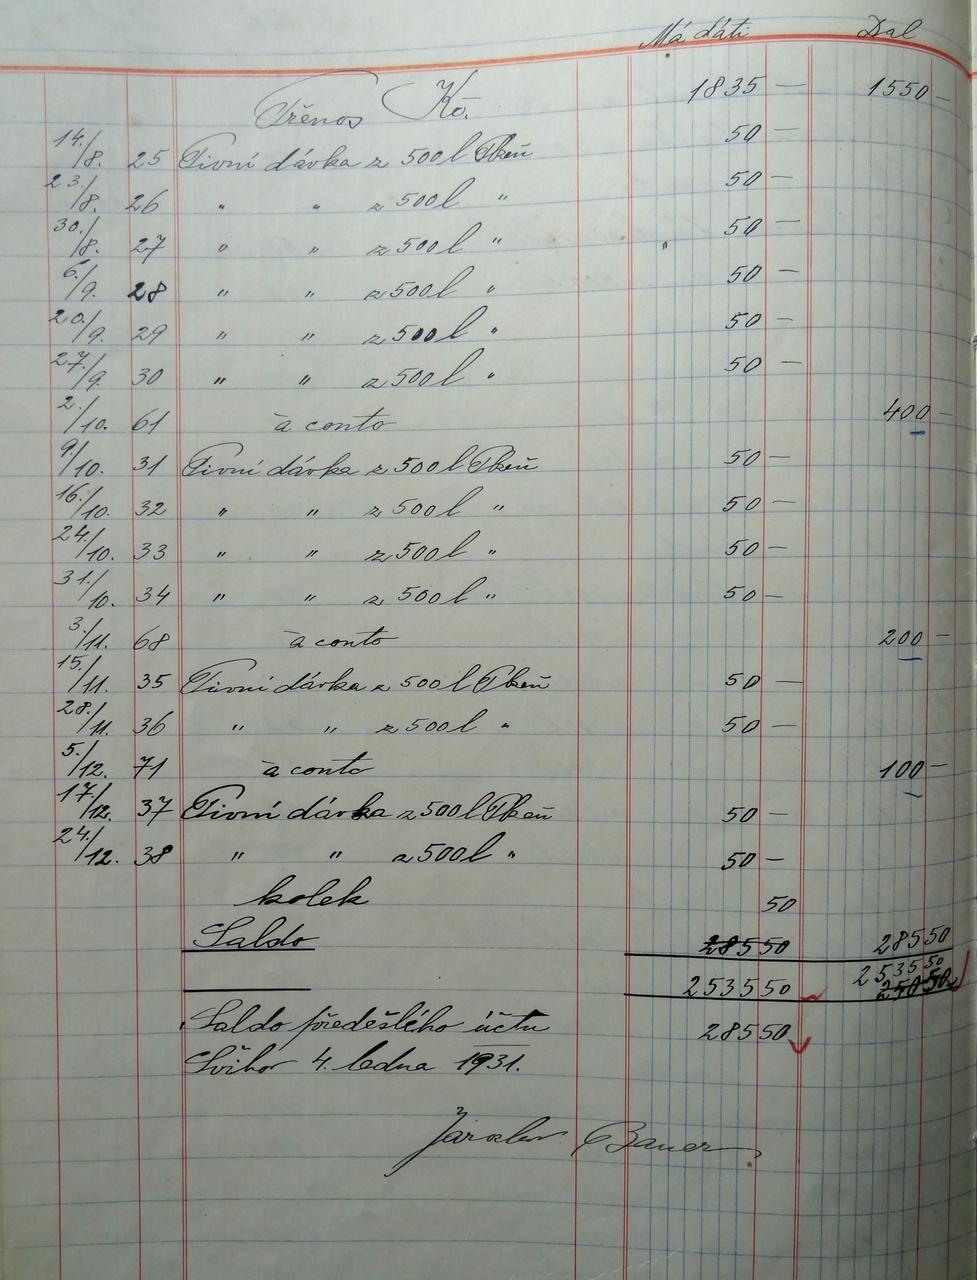 Má dáti Dal
Přenos Kč. 1835 — 1550 —
14./8. 25 Pivní dávka z 500 l Plzeň 50 —
23./8. 26 " " z 500 l " 50 —
30./8. 27 " " z 500 l " 50 —
6./9. 28 " " z 500 l " 50 —
20./9. 29 " " z 500 l " 50 —
27./9. 30 " " z 500 l " 50 —
2./10. 61 à conto 400 —
9./10. 31 Pivní dávka z 500 l Plzeň 50 —
16./10. 32 " " z 500 l " 50 —
24./10. 33 " " z 500 l " 50 —
31./10. 34 " " z 500 l " 50 —
3./11. 68 à conto 200 —
15./11. 35 Pivní dávka z 500 l Plzeň 50 —
28./11. 36 " " z 500 l " 50 —
5./12. 71 à conto 100 —
17./12. 37 Pivní dávka z 500 l Plzeň 50 —
24./12. 38 " " z 500 l " 50 —
kolek 50
Saldo 285 50 285 50
2535 50 2535 50
Saldo předešlého účtu 285 50
Švihov 4. ledna 1931.
Jaroslav Bauer